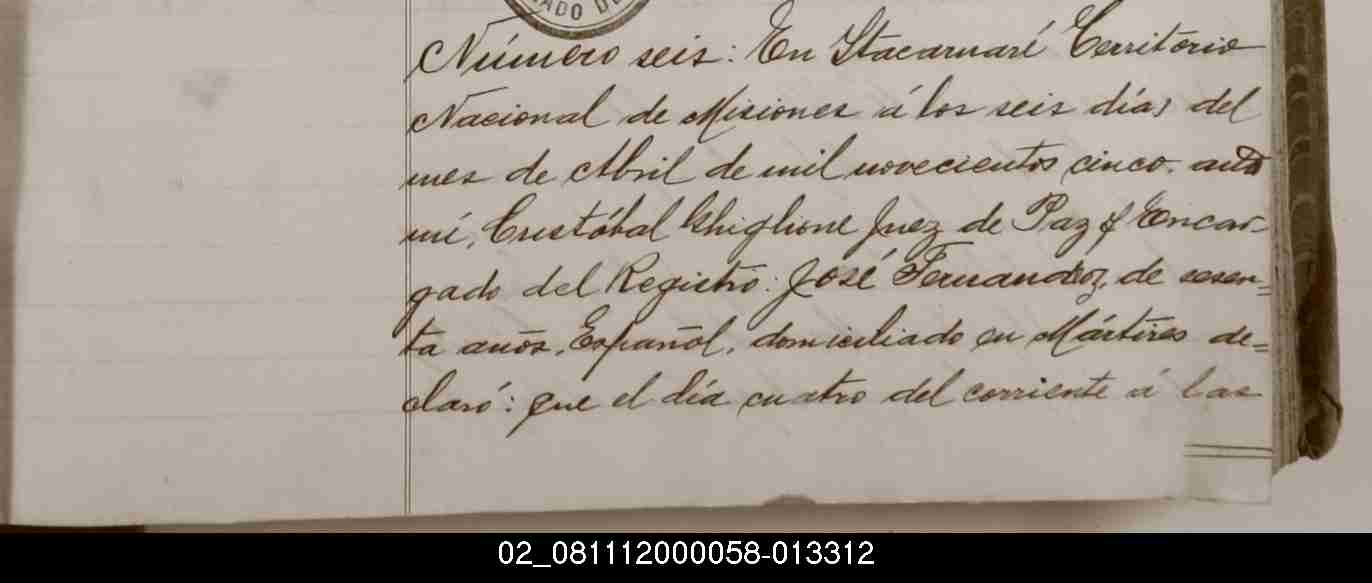 ADO DE
Número seis: En Itacaruaré Territorio
Nacional de Misiones á los seis días del
mes de Abril de mil novecientos cinco. ante
mí, Cristóbal Ghiglione Juez de Paz y Encar-
gado del Registro: José Fernandez, de sesen=
ta años, Español, domiciliado en Mártires de=
claró: que el día cuatro del corriente á las
02_081112000058-013312